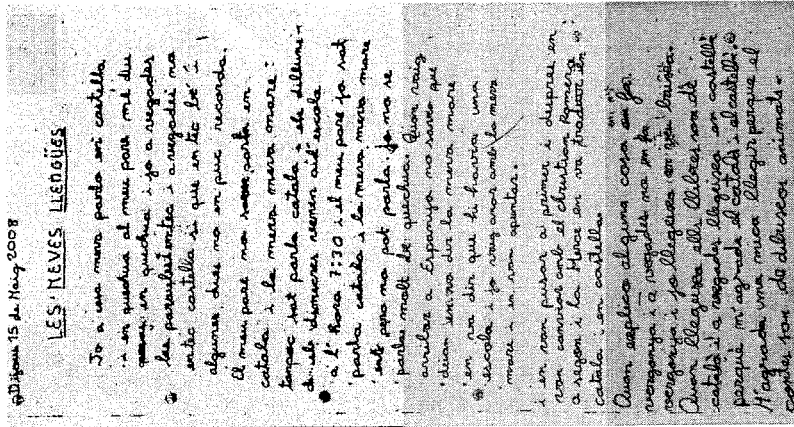 Dijous 15 de Maig 2008
LES MEVES LLENGÜES
Jo a casa meva parlo en castellà
i en quechua el meu pare me diu
en quechua i jo a vegades
les paraules entec i a vegades no
entec castella si que en tec be i
algunes dies no en puc recorda.
El meu pare no parla en
català i la meva meva mare
tampoc sat parla català i els dilluns i
els dimecres venen a escola
a l'hora 7:30 i el meu pare ja sat
parla català i la meva meva mare
ent pero no pot parla. Jo no se
parla molt de quechua. Quan vaig
arribar a Espanya no savia que
dien em va dir la meva mare
em va dir que hi havia una
escola i jo vaig anar amb la meva
mare i em van apuntar.
i em van pusar a primer i despres em
van canviar amb el Christian Romero
a segon i la Merce em va traduir en
català en castella
Quan explico alguna cosa em fa
vergonya i a vegades no em fa
vergonya i jo llegueixo en veu baixa.
Quan llegueixo elli llibres son de
català i a vegades llegueixo en castellà
perquè m'agrada el català i el castellà.
M'agrada una mica llegir perque el
contes son de dibuixos animats.